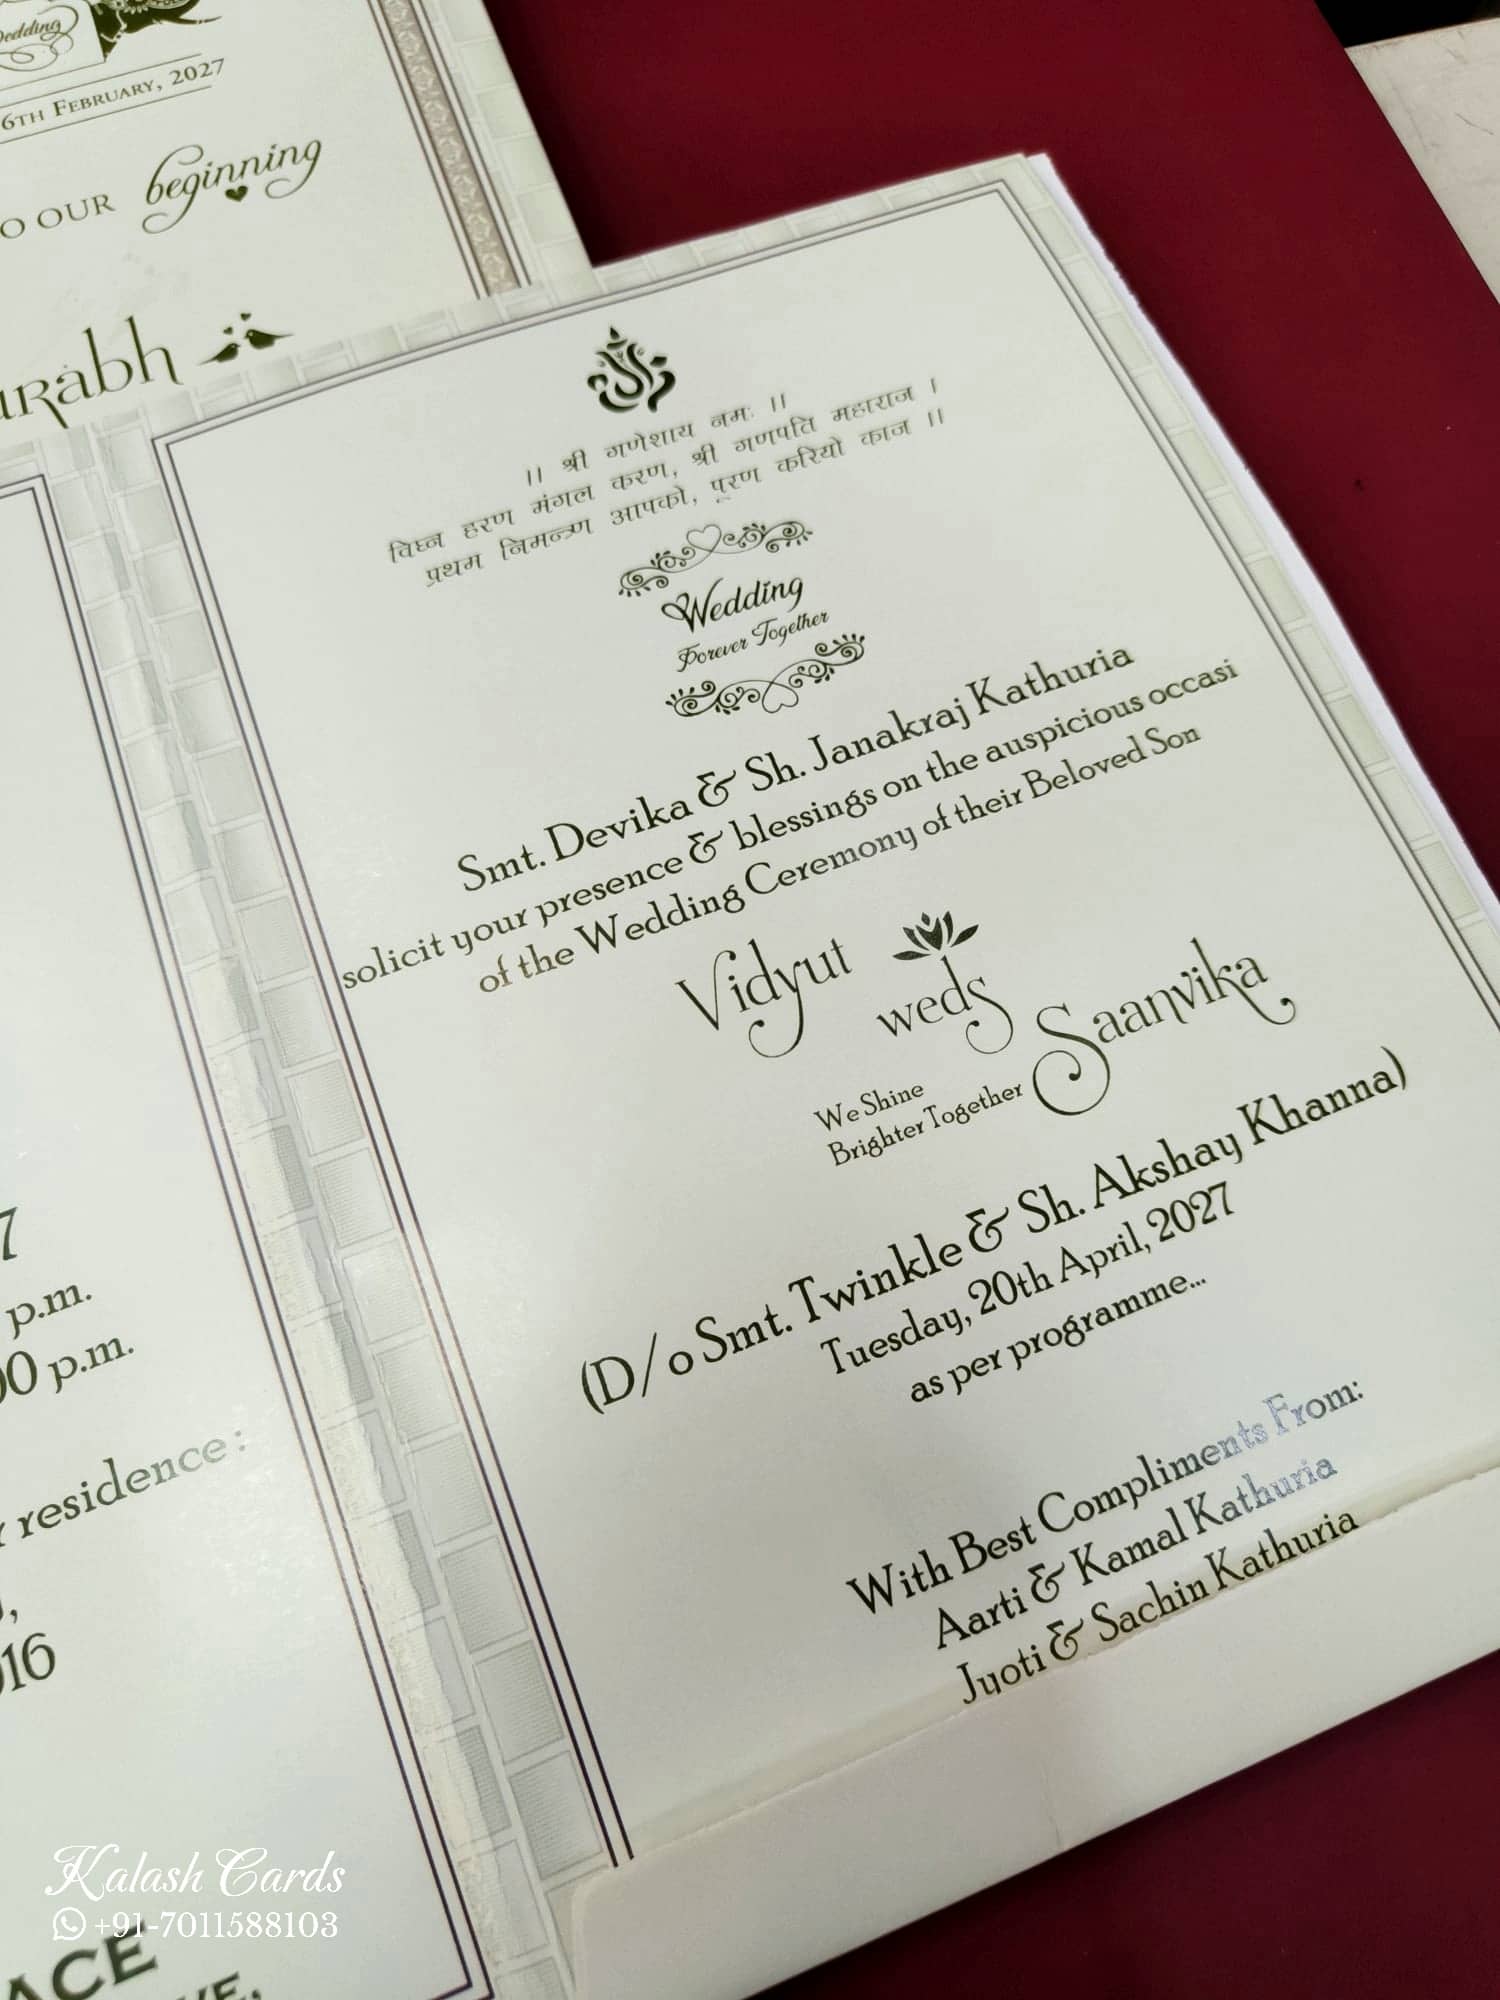 Wedding
6TH FEBRUARY, 2027
O OUR beginning
urabh
।। श्री गणेशाय नमः ।।
विघ्न हरण मंगल करण, श्री गणपति महाराज ।
प्रथम निमन्त्रण आपको, पूरण करियो काज ।।
Wedding
Forever Together
Smt. Devika & Sh. Janakraj Kathuria
solicit your presence & blessings on the auspicious occasi
of the Wedding Ceremony of their Beloved Son
Vidyut
weds
Saanvika
We Shine
Brighter Together
(D/o Smt. Twinkle & Sh. Akshay Khanna)
Tuesday, 20th April, 2027
as per programme...
With Best Compliments From:
Aarti & Kamal Kathuria
Jyoti & Sachin Kathuria
7
p.m.
00 p.m.
r residence :
016
ACE
VE,
Kalash Cards
+91-7011588103